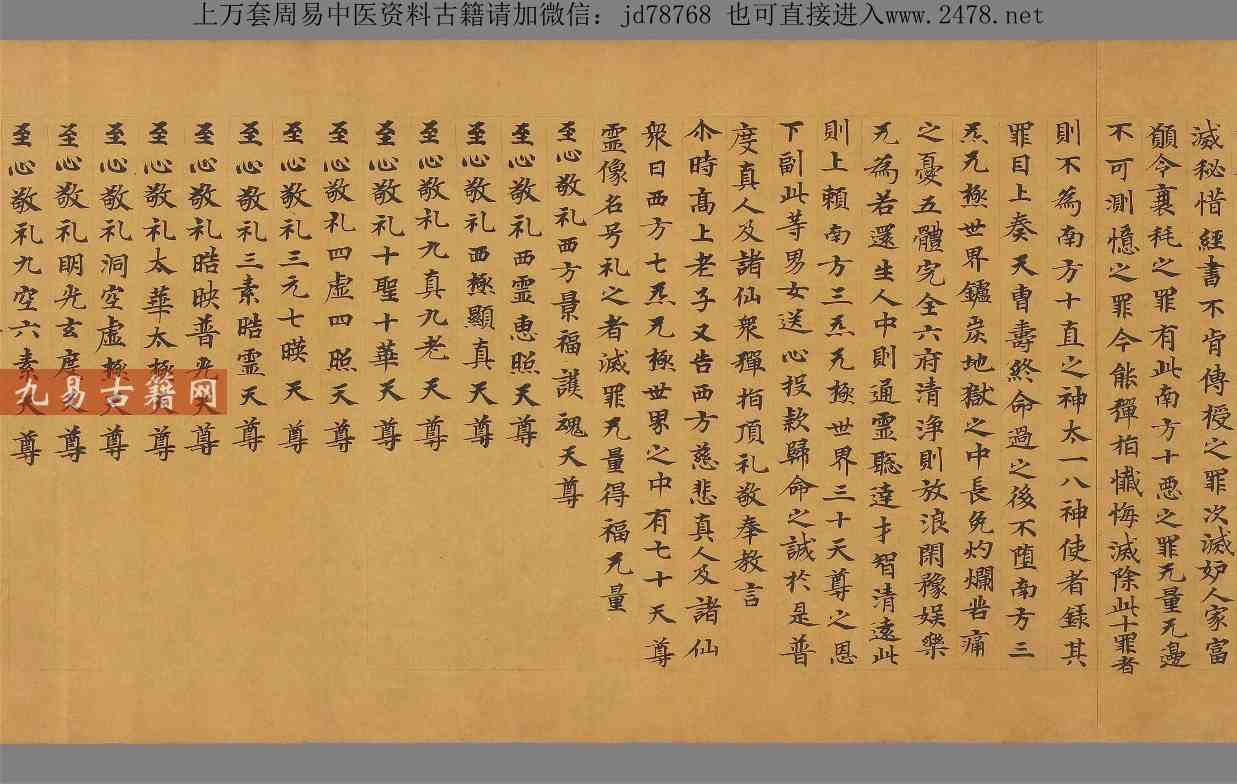 上万套周易中医资料古籍请加微信：jd78768 也可直接进入www.2478.net
滅秘惜經書不肯傳授之罪次滅妒人家富
顛令衰耗之罪有此南方十惡之罪无量无邊
不可測憶之罪今能彈指懴悔滅除此十罪者
則不為南方十直之神太一八神使者録其
罪目上奏天曹壽終命過之後不墮南方三
炁无極世界鑪炭地獄之中長免灼爛苦痛
之憂五體完全六府清浄則放浪閑豫娱樂
无為若還生人中則通靈聡達才智清遠此
則上賴南方三炁无極世界三十天尊之恩
下副此等男女送心投款歸命之誠於是普
度真人及諸仙衆彈指頂礼敬奉教言
尒時髙上老子又告西方慈悲真人及諸仙
衆曰西方七炁无極世界之中有七十天尊
靈像名号礼之者滅罪无量得福无量
至心敬礼西方景福護魂天尊
至心敬礼西靈恵照天尊
至心敬礼西極顯真天尊
至心敬礼九真九老天尊
至心敬礼十聖十華天尊
至心敬礼四虚四照天尊
至心敬礼三元七暎天尊
至心敬礼三素晧靈天尊
至心敬礼晧映普光天尊
至心敬礼太華太極天尊
至心敬礼洞空虚極天尊
至心敬礼明光玄度天尊
至心敬礼九空六素天尊
九易古籍网